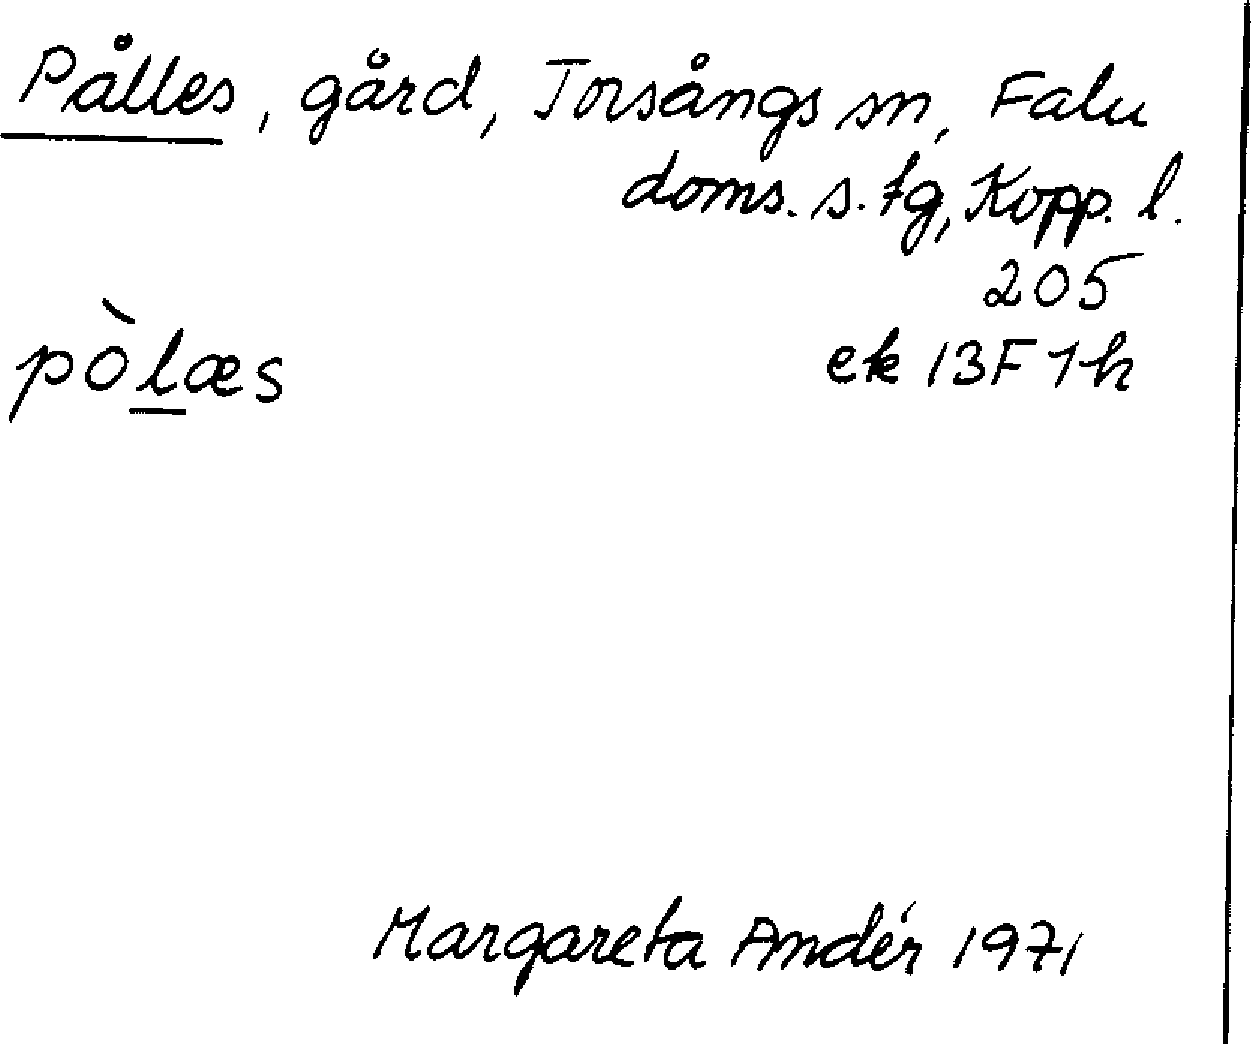 Pålles, gård, Torsångs sn, Falu
doms. s. tg, Kopp. l.
205
pòlæs
ek 13F 1h
Margareta Andér 1971